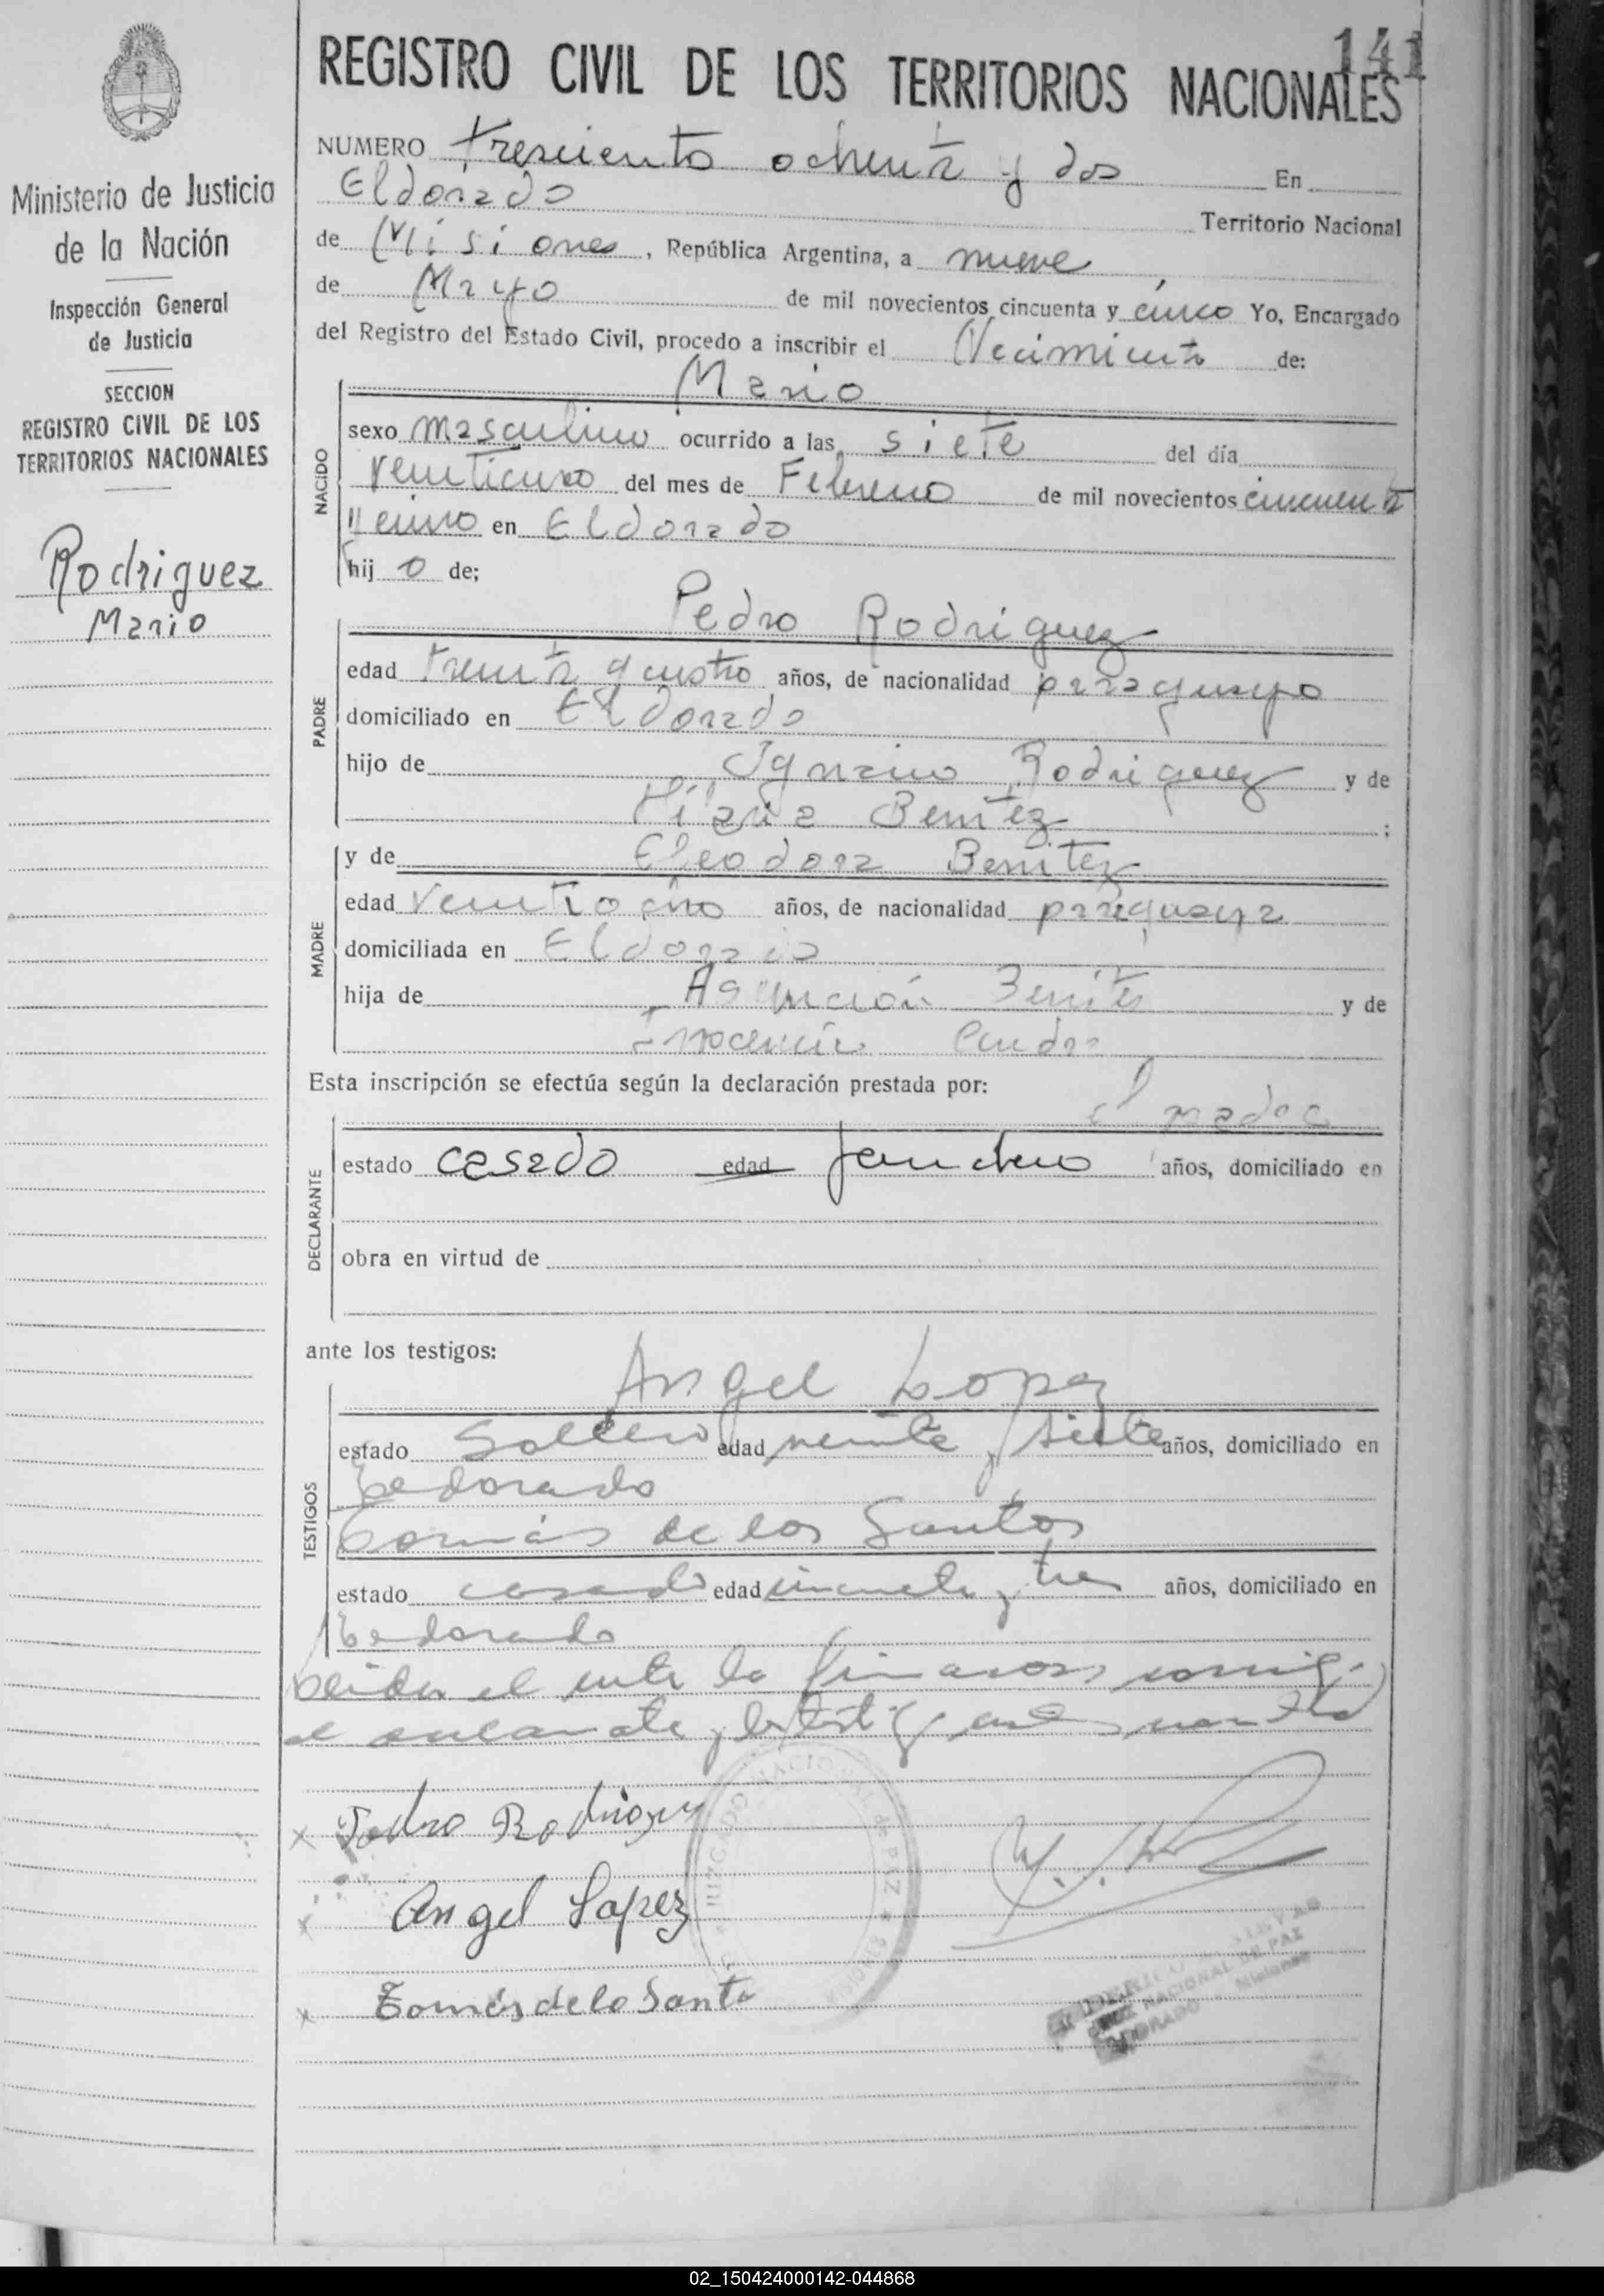 141
REGISTRO CIVIL DE LOS TERRITORIOS NACIONALES
Ministerio de Justicia
de la Nación
Inspección General
de Justicia
SECCION
REGISTRO CIVIL DE LOS
TERRITORIOS NACIONALES
Rodriguez
Mario
NUMERO tresciento ochenta y dos En
Eldorado Territorio Nacional
de Misiones, República Argentina, a nueve
de Mayo de mil novecientos cincuenta y cinco Yo, Encargado
del Registro del Estado Civil, procedo a inscribir el Nacimiento de:
NACIDO
Mario
sexo masculino ocurrido a las siete del día
del mes de Febrero de mil novecientos cincuenta
y cinco en Eldorado
hijo de;
PADRE
Pedro Rodriguez
edad treinta y cuatro años, de nacionalidad paraguayo
domiciliado en Eldorado
hijo de Ignacio Rodriguez y de
Hilaria Benitez;
MADRE
y de Eleodora Benitez
edad años, de nacionalidad paraguaya
domiciliada en Eldorado
hija de Asunción Benites y de
Inocencia
Esta inscripción se efectúa según la declaración prestada por:
el padre
DECLARANTE
estado casado edad años, domiciliado en
obra en virtud de
ante los testigos:
TESTIGOS
Angel Lopez
estado Soltero edad veinte y siete años, domiciliado en
Eldorado
Tomás de los Santos
estado casado edad cincuenta y tres años, domiciliado en
Eldorado
el acta la firmaron conmigo
el declarante y los testigos
Pedro Rodriguez
Angel Lopez
Tomás de lo Santo
JUZGADO NACIONAL de PAZ
MISIONES
JUEZ NACIONAL DE PAZ
ELDORADO - Misiones
02_150424000142-044868